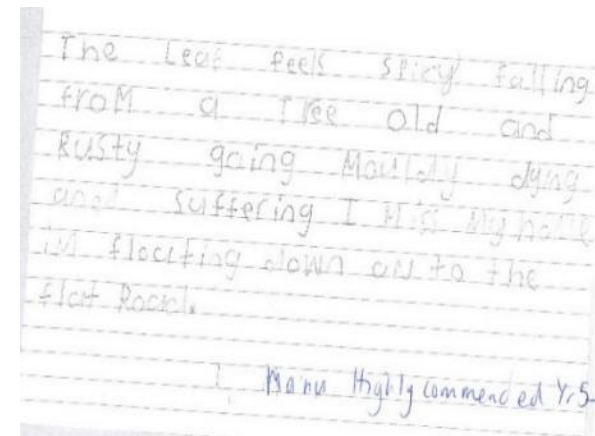 The Leaf feels spicy falling
from a Tree old and
Rusty going Mouldy dying
and suffering I Miss My home
iM floating down on to the
flat Rock.
Manu Highly commended Yr5